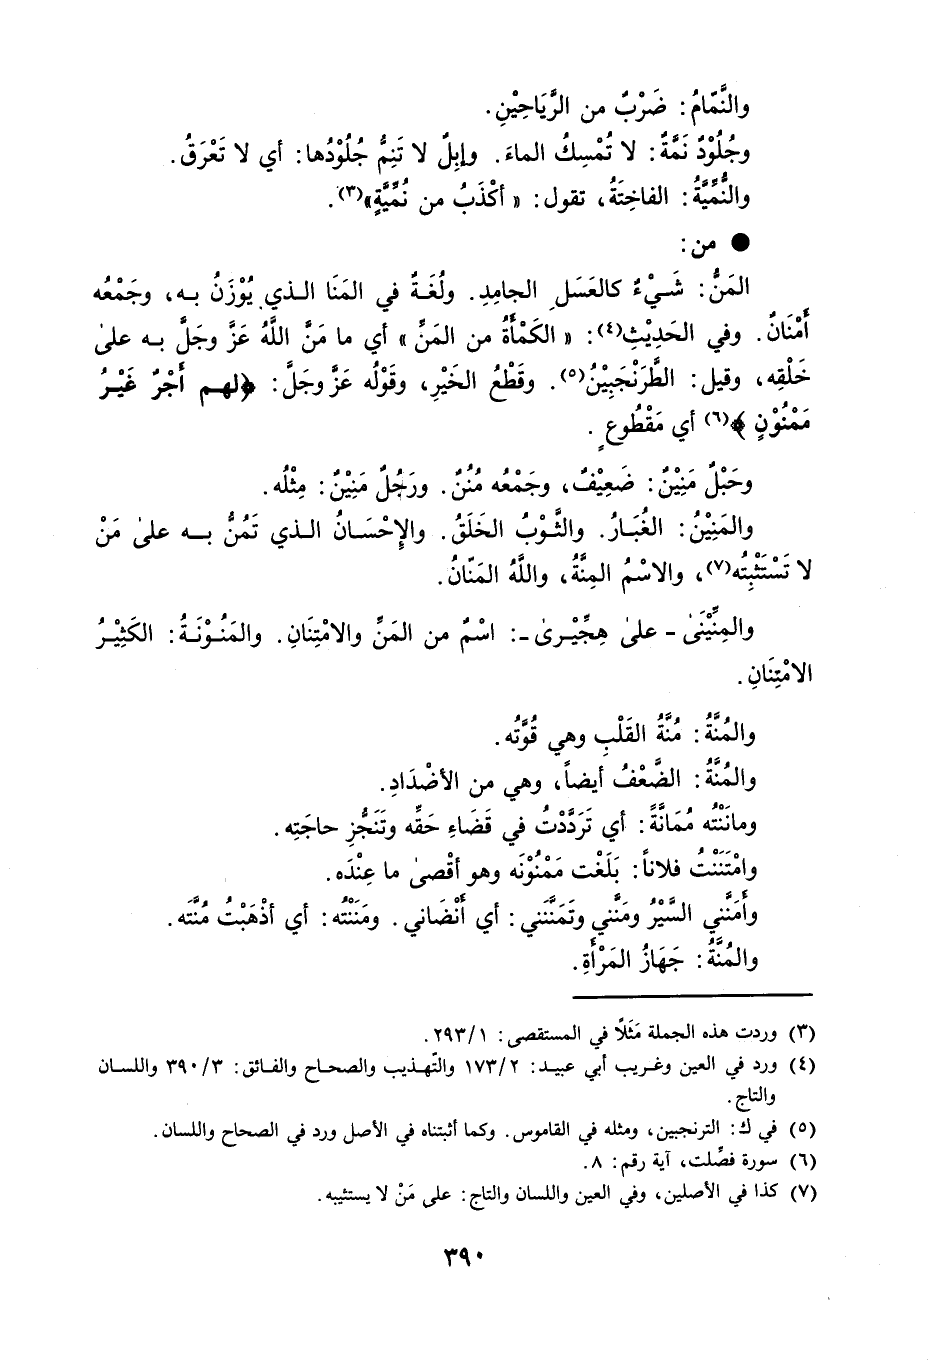 والنَّمّامُ: ضَرْبٌ من الرَّيَاحِيْنِ.
وجُلُوْدٌ نَمَّةٌ: لا تُمْسِكُ الماءَ. وإبِلٌ لا تَنِمُّ جُلُوْدُها: أي لا تَعْرَقُ.
والنُّمِّيَّةُ: الفاخِتَةُ، تقول: «أكْذَبُ من نُمِّيَّةٍ»(٣).
● من:
المَنُّ: شَيْءٌ كالعَسَلِ الجامِدِ. ولُغَةٌ في المَنَا الذي يُوْزَنُ به، وجَمْعُه
أَمْنَانٌ. وفي الحَدِيْثِ(٤): «الكَمْأَةُ من المَنِّ» أي ما مَنَّ اللَّهُ عَزَّ وجَلَّ به على
خَلْقِه، وقيل: الطَّرَنْجَبِيْنُ(٥). وقَطْعُ الخَيْرِ، وقَوْلُه عَزَّ وجَلَّ: ﴿لهم أَجْرٌ غَيْرُ
مَمْنُوْنٍ﴾(٦) أي مَقْطُوعٍ.
وحَبْلٌ مَنِيْنٌ: ضَعِيْفٌ، وجَمْعُه مُنُنٌ. ورَجُلٌ مَنِيْنٌ: مِثْلُه.
والمَنِيْنُ: الغُبَارُ. والثَّوْبُ الخَلَقُ. والإِحْسَانُ الذي تَمُنُّ به على مَنْ
لا تَسْتَثْبِتُه(٧)، والاسْمُ المِنَّةُ، واللَّهُ المَنّانُ.
والمِنِّيْنَىٰ - علىٰ هِجِّيْرىٰ -: اسْمٌ من المَنِّ والامْتِنَانِ. والمَنُوْنَةُ: الكَثِيْرُ
الامْتِنَانِ.
والمُنَّةُ: مُنَّةُ القَلْبِ وهي قُوَّتُه.
والمُنَّةُ: الضَّعْفُ أيضاً، وهي من الأضْدَادِ.
ومانَنْتُه مُمَانَّةً: أي تَرَدَّدْتُ في قَضَاءِ حَقِّه وتَنَجُّزِ حاجَتِه.
وامْتَنَنْتُ فلاناً: بَلَغْت مَمْنُوْنَه وهو أقْصىٰ ما عِنْدَه.
وأَمَنَّني السَّيْرُ ومَنَّني وتَمَنَّنَني: أي أَنْضَاني. ومَنَنْتُه: أي أذْهَبْتُ مُنَّتَه.
والمُنَّةُ: جَهَازُ المَرْأَةِ.
(٣) وردت هذه الجملة مَثَلًا في المستقصى: ٢٩٣/١.
(٤) ورد في العين وغريب أبي عبيد: ١٧٣/٢ والتّهذيب والصحاح والفائق: ٣٩٠/٣ واللسان
والتاج.
(٥) في ك: الترنجبين، ومثله في القاموس. وكما أثبتناه في الأصل ورد في الصحاح واللسان.
(٦) سورة فصِّلت، آية رقم: ٨.
(٧) كذا في الأصلين، وفي العين واللسان والتاج: على مَنْ لا يستثيبه.
٣٩٠